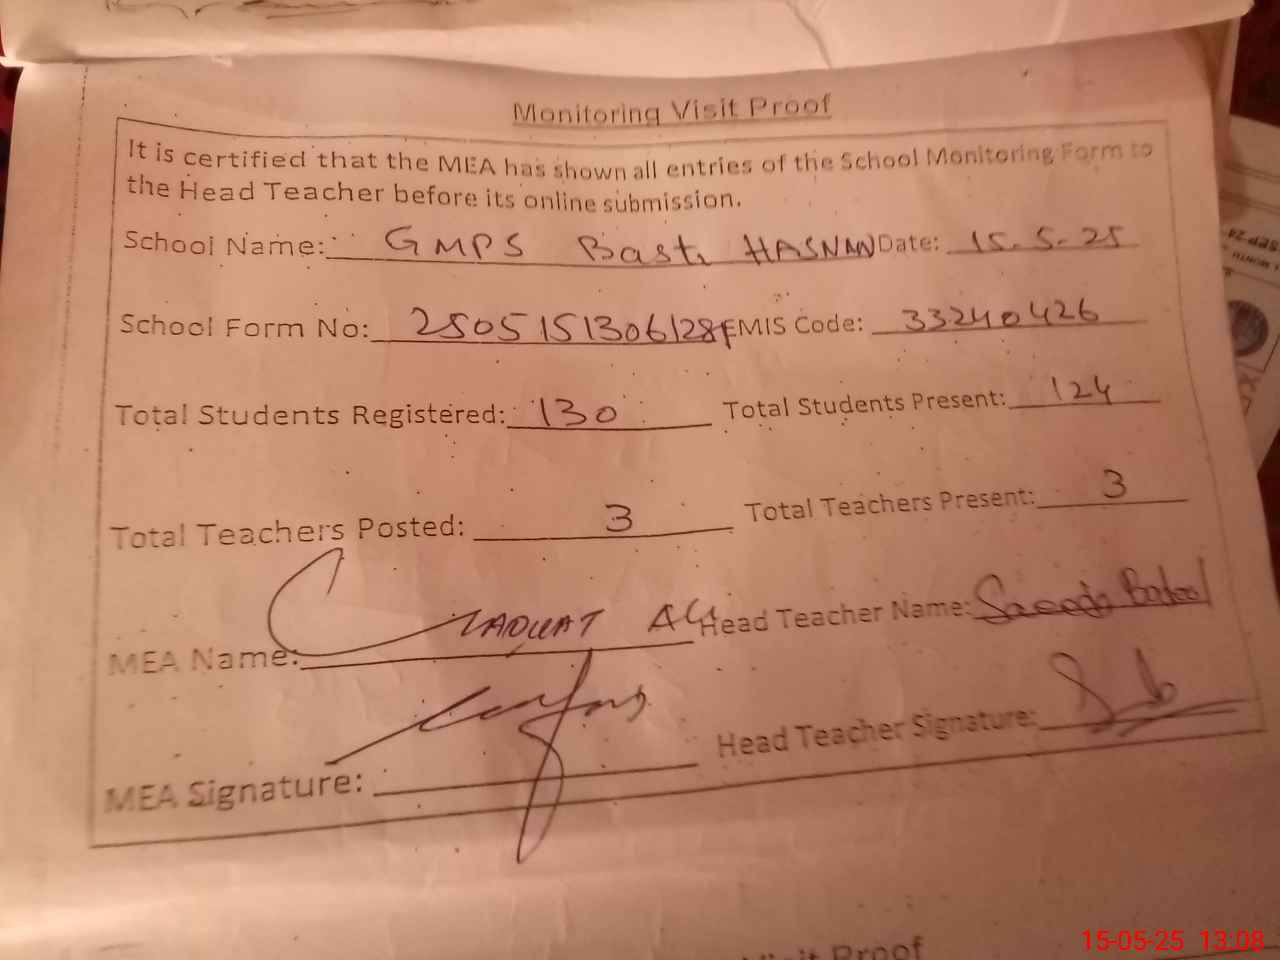 Monitoring Visit Proof
It is certified that the MEA has shown all entries of the School Monitoring Form to
the Head Teacher before its online submission.
School Name: GMPS Basti HASNAN Date: 15.5.25
School Form No: 2505151306128 EMIS Code: 33240426
Total Students Registered: 130 Total Students Present: 124
Total Teachers Posted: 3 Total Teachers Present: 3
MEA Name: ALI Head Teacher Name: Saeeda Batool
MEA Signature: Head Teacher Signature:
Visit Proof
15-05-25 13:08